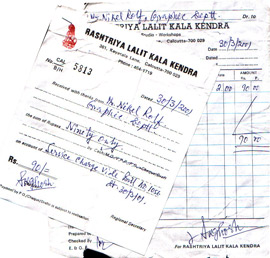 Mr. Nikel Rolf, Graphic Deptt Dr. to
RASHTRIYA LALIT KALA KENDRA
Studio - Workshops
Calcutta-700 029
30/3/2001
AMOUNT
Rs. P.
2.00 90 00
90 00
For RASHTRIYA LALIT KALA KENDRA
Prepared
Checked by
E. & O. E.
RASHTRIYA LALIT KALA KENDRA
Keyatala Lane, Calcutta-700 029
Phone :
No. CAL 5813
B/H
Dated 30/3/2001
Received with thanks from Mr. Nikel Rolf
Graphic Deptt
Rupees Ninety only
on account of Service charge vide Bill No. 104
dt. 30/3/01.
Rs. 90/-
Regional Secretary